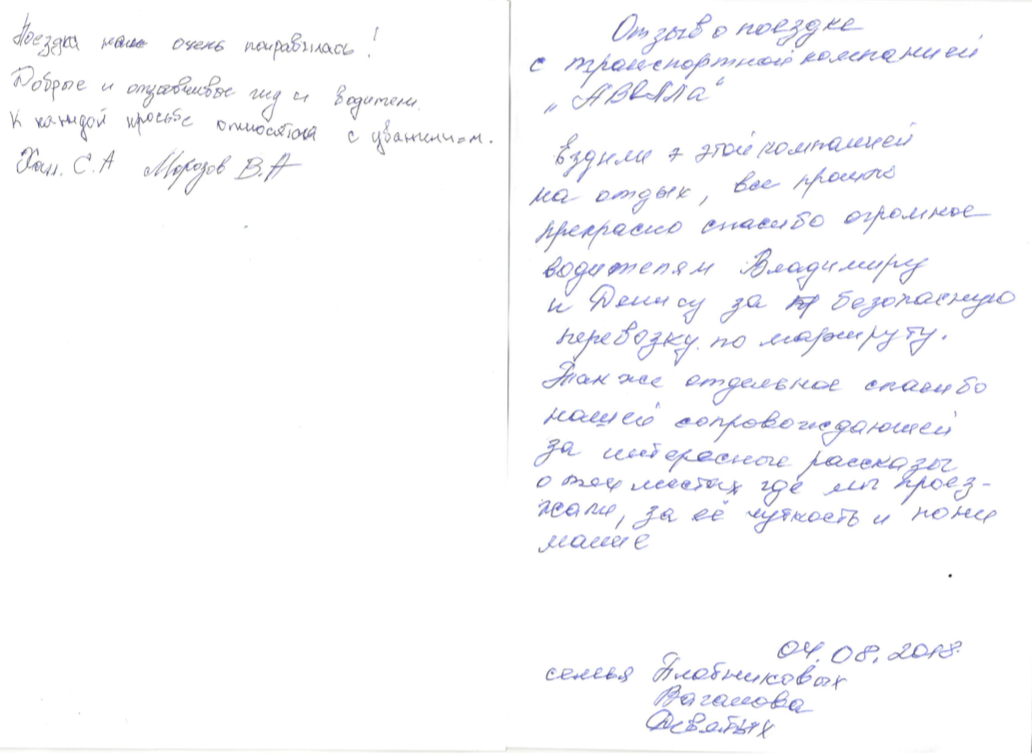 Поездка нам очень понравилась!
Добрые и отзывчивые гид и водители.
К каждой просьбе относятся с уважением.
Хан. С.А Морозов В.А
Отзыв о поездке
с транспортной компанией
"АВВАЛа"
Ездили с этой компанией
на отдых, все прошло
прекрасно спасибо огромное
водителям Владимиру
и Денису за безопасную
перевозку по маршруту.
Так же отдельное спасибо
нашей сопровождающей
за интересные рассказы
о тех местах где мы проез-
жали, за её чуткость и пони
мание
04.08.2018.
семья Плотниковых
Ваганова
Девятых